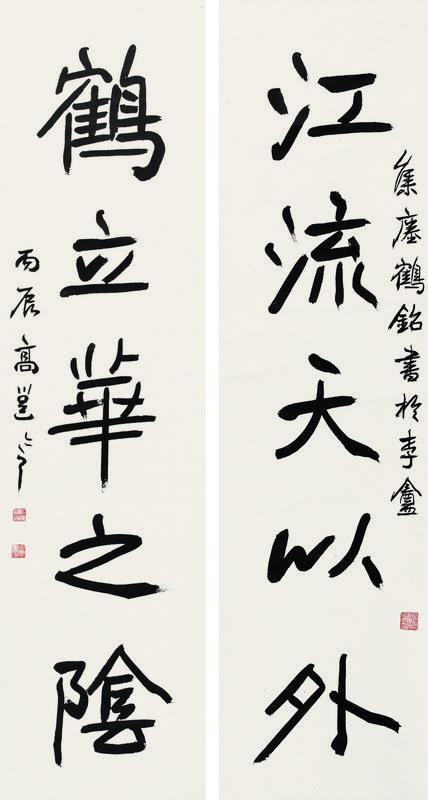 集瘞鶴銘書於李盦
江流天以外
鶴立華之陰
丙辰高邕